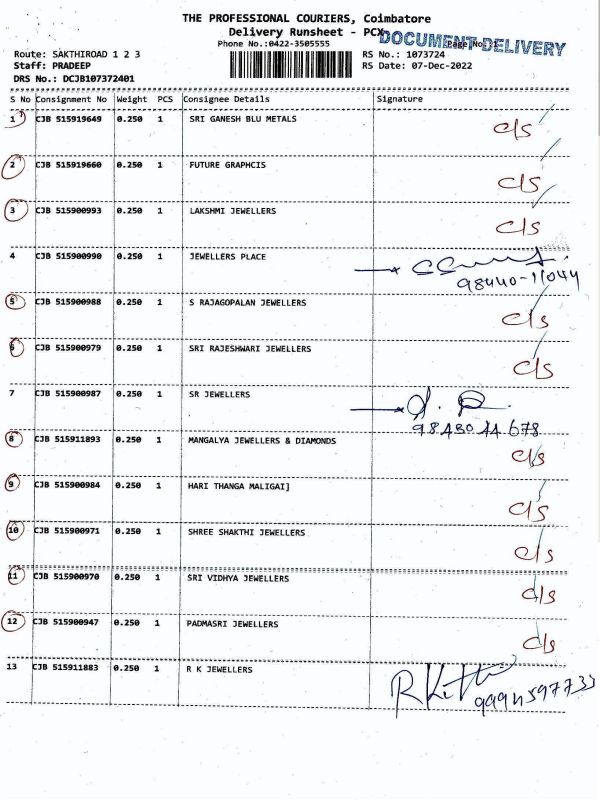 THE PROFESSIONAL COURIERS, Coimbatore
Delivery Runsheet - PCX
DOCUMENT DELIVERY
Phone No.:0422-3505555
Page No.:1
Route: SAKTHIROAD 1 2 3
RS No.: 1073724
Staff: PRADEEP
RS Date: 07-Dec-2022
DRS No.: DCJB107372401
S No Consignment No Weight PCS Consignee Details Signature
1 CJB 515919649 0.250 1 SRI GANESH BLU METALS c/s
2 CJB 515919660 0.250 1 FUTURE GRAPHCIS c/s
3 CJB 515900993 0.250 1 LAKSHMI JEWELLERS c/s
4 CJB 515900990 0.250 1 JEWELLERS PLACE
98440-11044
5 CJB 515900988 0.250 1 S RAJAGOPALAN JEWELLERS c/s
6 CJB 515900979 0.250 1 SRI RAJESHWARI JEWELLERS c/s
7 CJB 515900987 0.250 1 SR JEWELLERS
98430 44 678
8 CJB 515911893 0.250 1 MANGALYA JEWELLERS & DIAMONDS c/s
9 CJB 515900984 0.250 1 HARI THANGA MALIGAI] c/s
10 CJB 515900971 0.250 1 SHREE SHAKTHI JEWELLERS c/s
11 CJB 515900970 0.250 1 SRI VIDHYA JEWELLERS c/s
12 CJB 515900947 0.250 1 PADMASRI JEWELLERS c/s
13 CJB 515911883 0.250 1 R K JEWELLERS